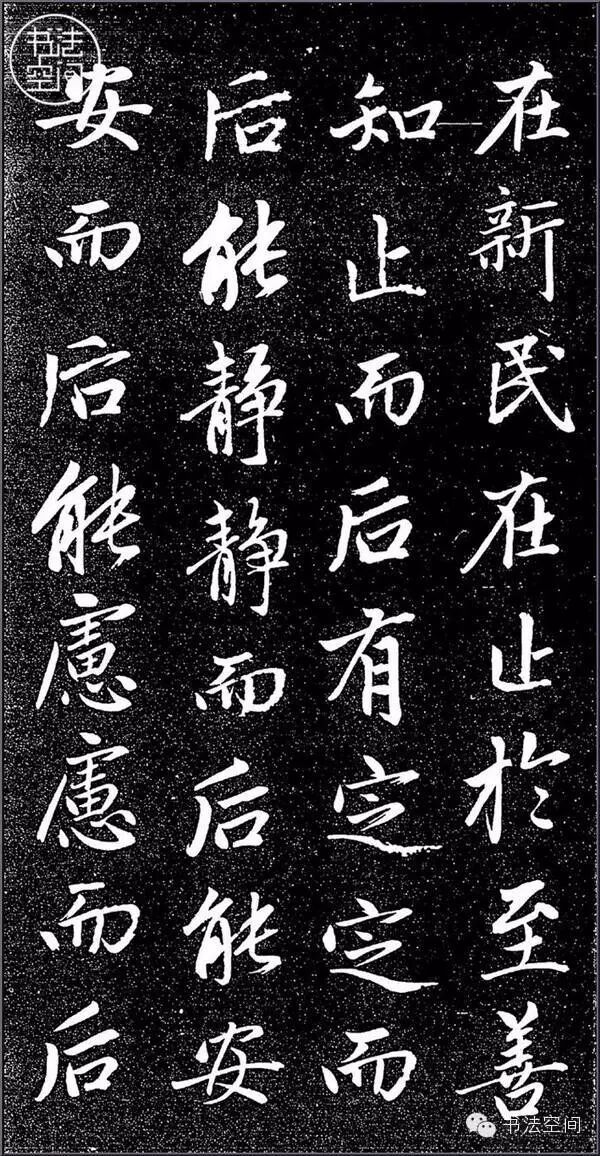 在新民在止於至善
知止而后有定定而
后能静静而后能安
安而后能慮慮而后
书法空间
书法空间